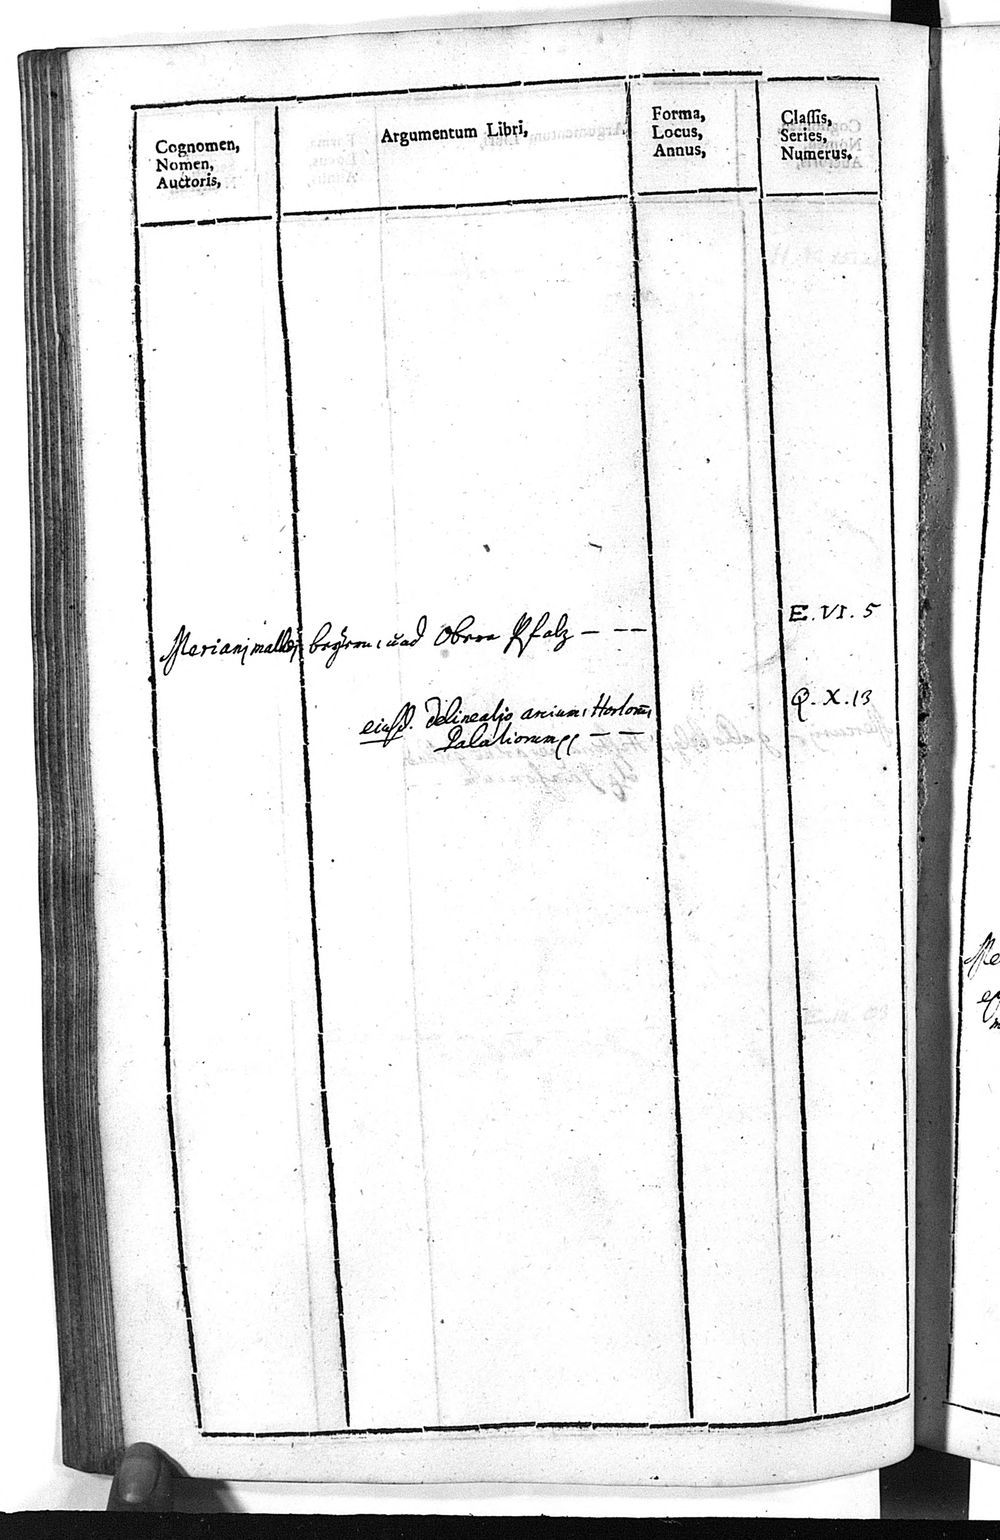 Cognomen,
Nomen,
Auctoris,
Argumentum Libri,
Forma,
Locus,
Annus,
Classis,
Series,
Numerus.
Meriani Matthei beyern, und Obern Pfalz — — — E. VI. 5
eiusd. Delineatio arcium, Hortorum, Q. X. 13
Palatiorum — —
Me